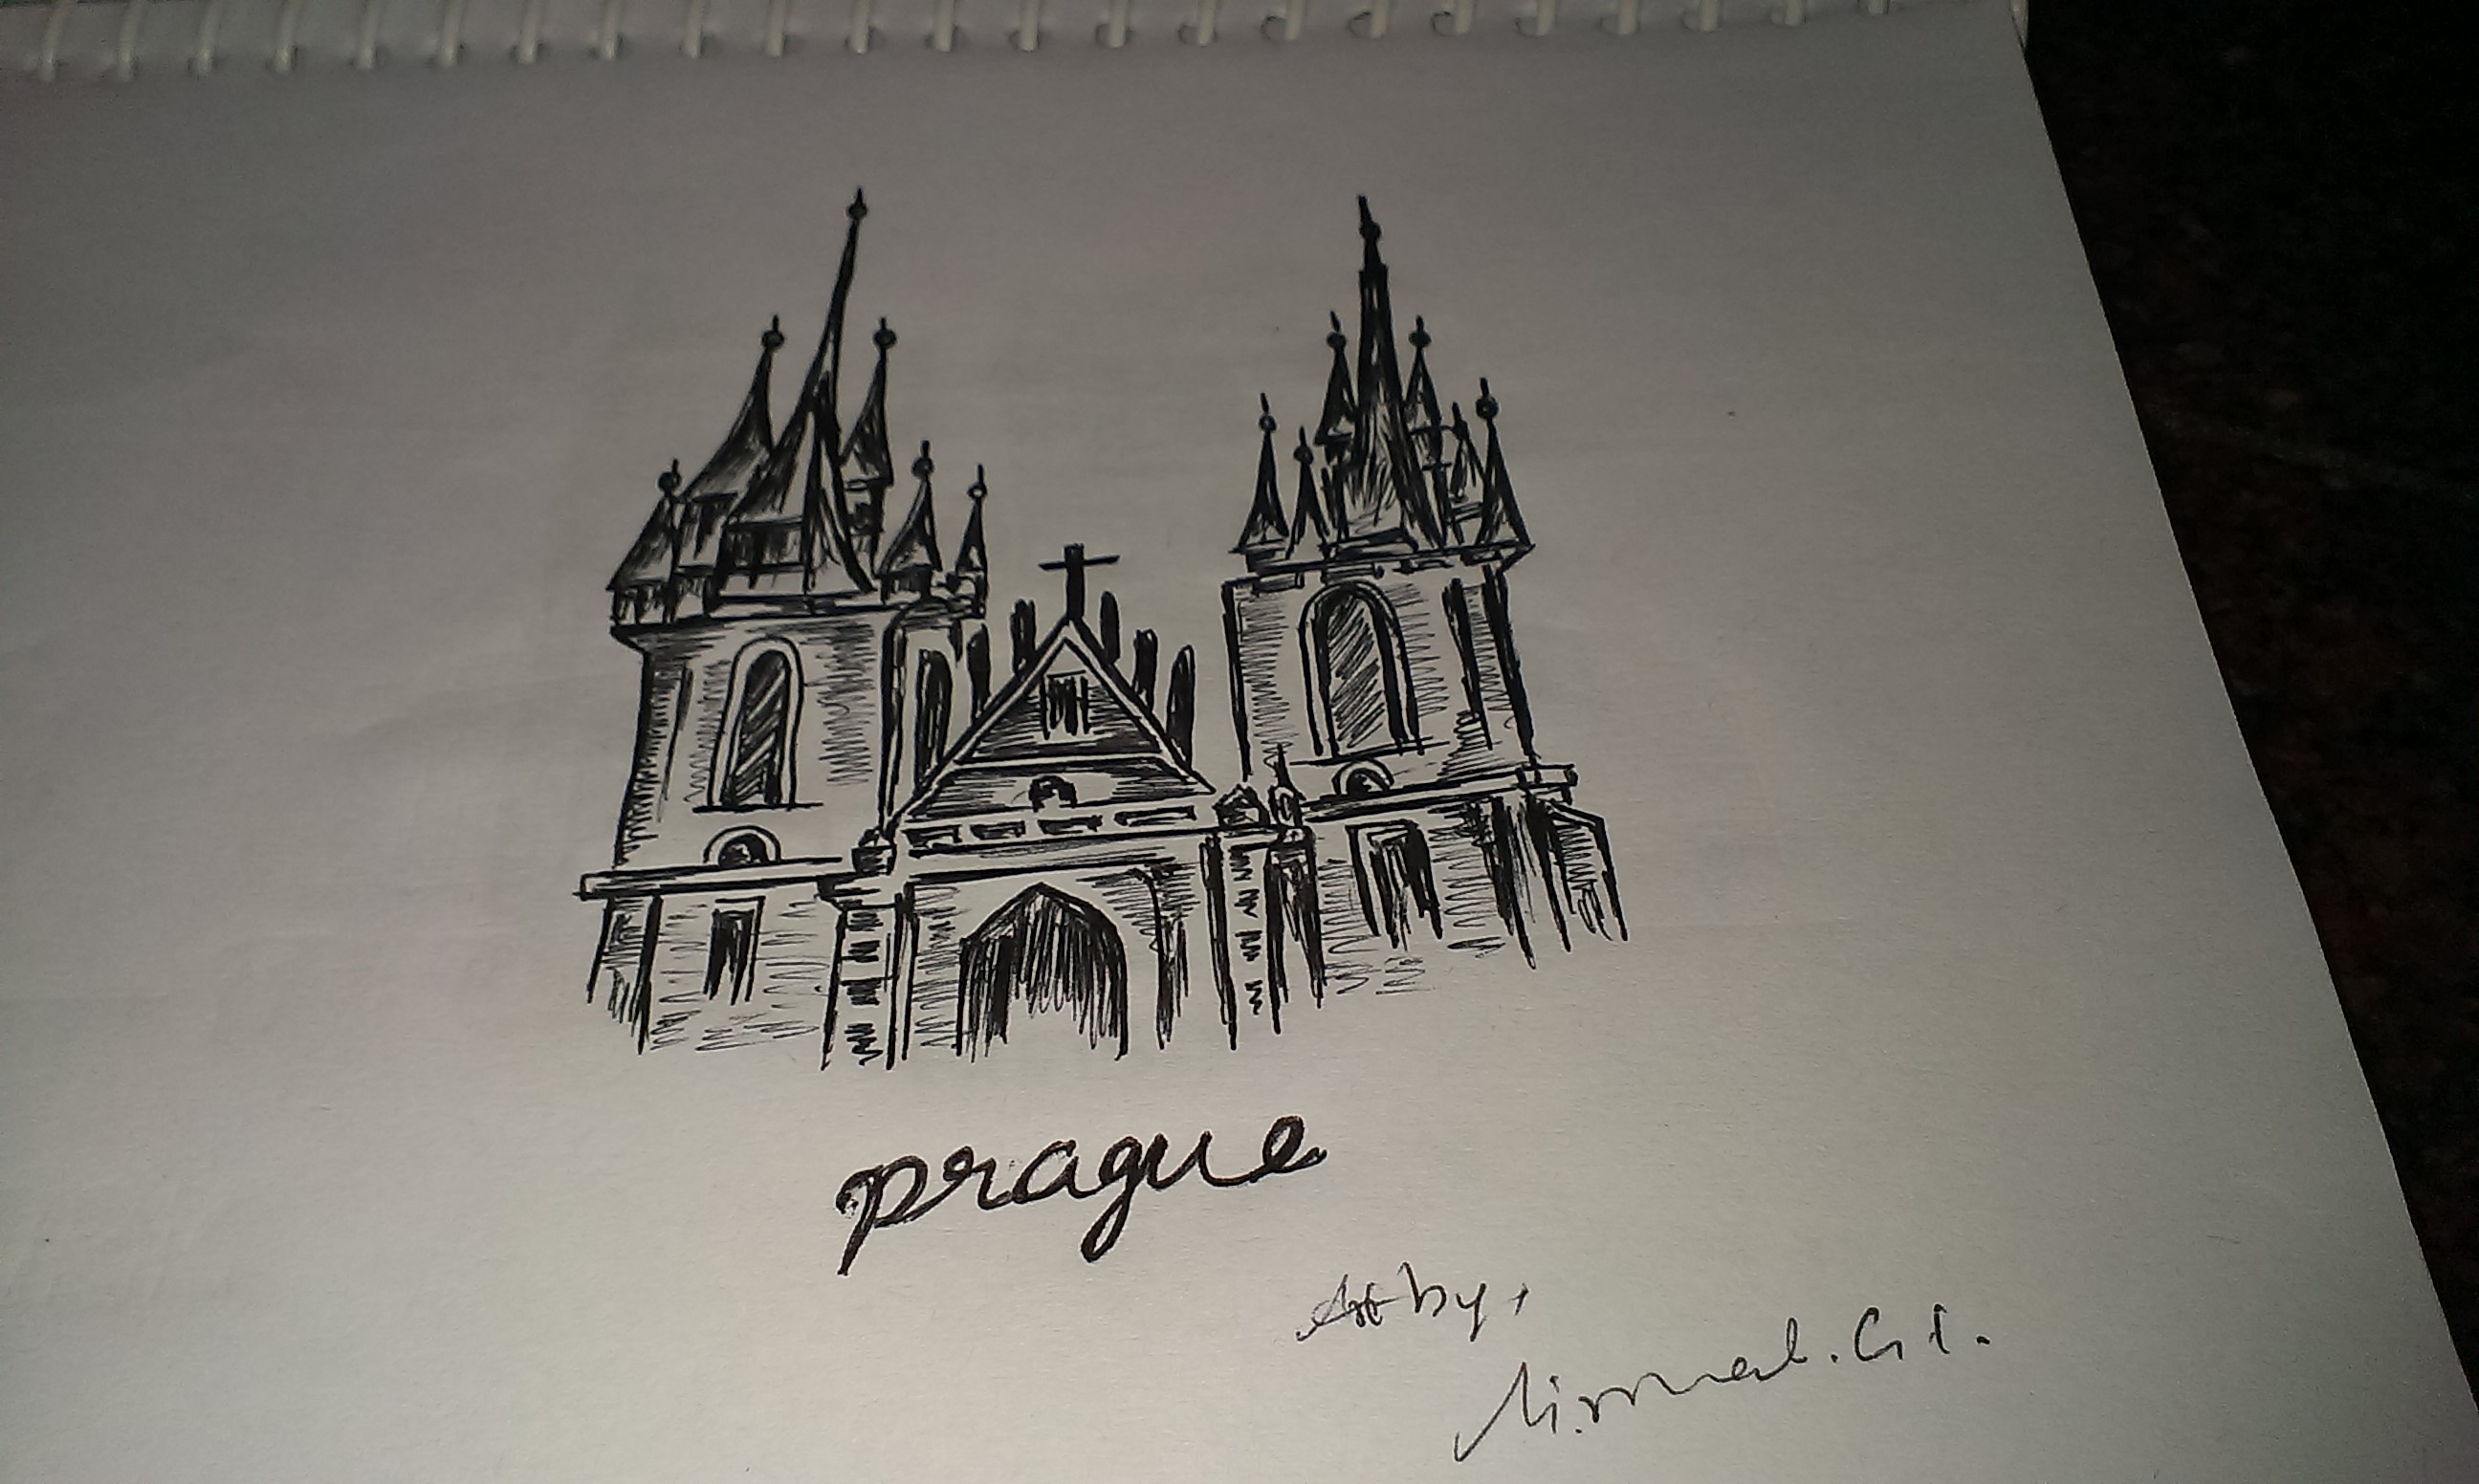 prague
Art by,
Nirmal. G I.